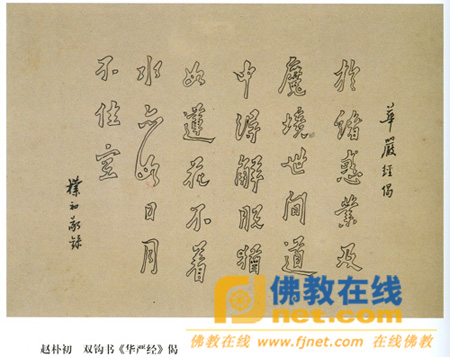 華嚴經偈
於諸惑業及
魔境世間道
中得解脫猶
如蓮花不着
水亦如日月
不住空
樸初敬錄
佛教在线
佛教在线 www.fjnet.com 在线佛教
赵朴初 双钩书《华严经》偈